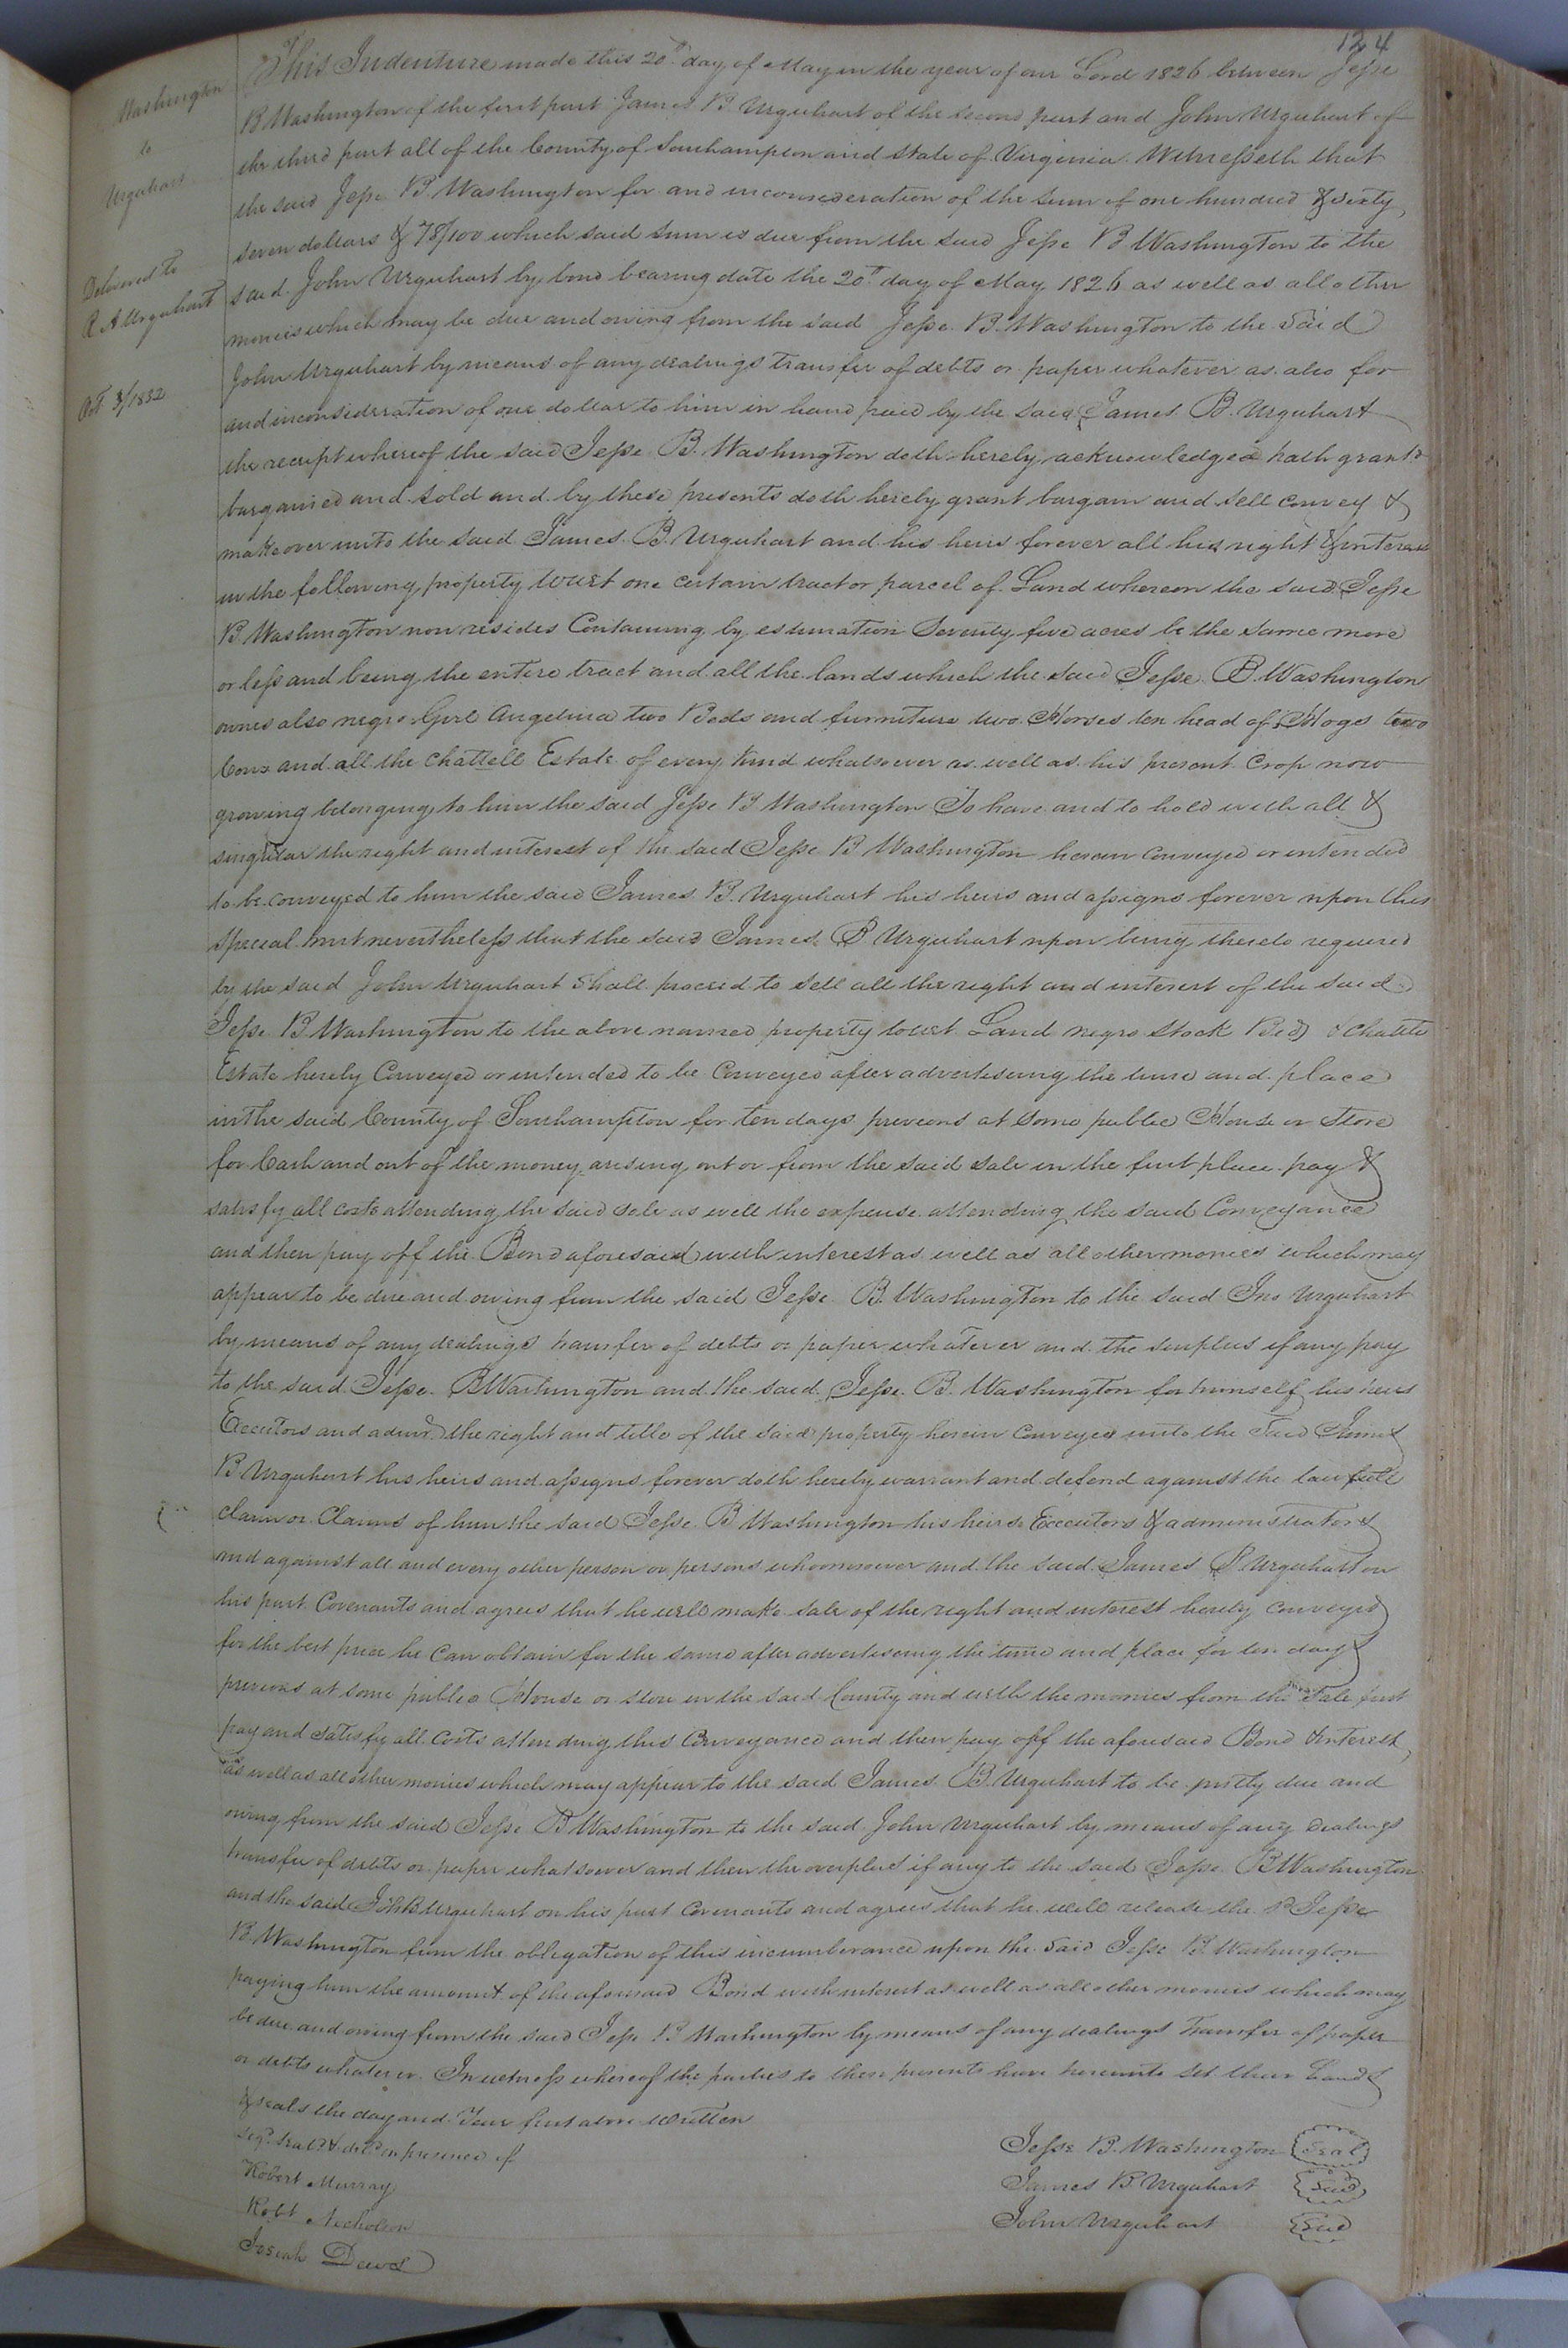 124
Washington
to
Urquhart
Delivered to
R A Urquhart
Oct 3/1832
This Indenture made this 20th day of May in the year of our Lord 1826 between Jesse
B Washington of the first part James B. Urquhart of the Second part and John Urquhart of
the third part all of the County of Southampton and State of Virginia Witnesseth that
the said Jesse B. Washington for and in consideration of the Sum of one hundred & sixty
seven dollars & 78/100 which said sum is due from the said Jesse B Washington to the
said John Urquhart by bond bearing date the 20th day of May 1826 as well as all other
monies which may be due and owing from the said Jesse B. Washington to the said
John Urquhart by means of any dealings transfer of debts or paper whatever as also for
and in consideration of one dollar to him in hand paid by the said James B. Urquhart
the receipt whereof the said Jesse B. Washington doth hereby acknowledged hath grantd
bargained and sold and by these presents doth hereby grant bargain and sell convey &
make over unto the said James B. Urquhart and his heirs forever all his right & interest
in the following property towit one certain tract or parcel of Land whereon the said Jesse
B Washington now resides Containing by estimation Seventy five acres be the same more
or less and being the entire tract and all the lands which the said Jesse B. Washington
owns also negro Girl Angelina two Beds and furniture two Horses ten head of Hogs two
Cows and all the chattell Estate of every kind whatsoever as well as his present Crop now
growing belonging to him the said Jesse B Washington To have and to hold with all &
singular the right and interest of the said Jesse B Washington herein Conveyed or intended
to be conveyed to him the said James B. Urquhart his heirs and assigns forever upon this
special trust nevertheless that the said James B Urquhart upon being thereto required
by the said John Urquhart shall proceed to sell all the right and interest of the said
Jesse B Washington to the above named property towit Land negro Stock Bed & chattle
Estate hereby Conveyed or intended to be Conveyed after advertiseing the time and place
in the said County of Southampton for ten days previous at some public House or Store
for Cash and out of the money arising out or from the said sale in the first place pay &
satisfy all costs attending the said sale as well the expense attending the said Conveyance
and then pay off the Bond aforesaid with interest as well as all other monies which may
appear to be due and owing from the said Jesse B. Washington to the said Jno Urquhart
by means of any dealings transfer of debts or paper whatever and the surplus if any pay
to the said Jesse B Washington and the said Jesse B. Washington for himself his heirs
Executors and admrs the right and title of the said property herein Conveyed unto the said James
B Urquhart his heirs and assigns forever doth hereby warrant and defend against the lawfull
claim or Claims of him the said Jesse B Washington his heirs Executors & administrators
and against all and every other person or persons whoomsoever and the said James B. Urquhart on
his part Covenants and agrees that he will make sale of the right and interest hereby conveyed
for the best price he can obtain for the same after advertiseing the time and place for ten days
previous at some public House or store in the said County and with the monies from the Sale first
pay and satisfy all costs attending this Conveyance and then pay off the aforesaid Bond & interest
as well as all other monies which may appear to the said James B. Urquhart to be justly due and
owing from the said Jesse B Washington to the said John Urquhart by means of any dealings
transfer of debts or paper whatsoever and then the overplus if any to the said Jesse B Washington
and the said John Urquhart on his part Covenants and agrees that he will release the sd Jesse
B Washington from the obligation of this incumberance upon the said Jesse B Washington
paying him the amount of the aforesaid Bond with interest as well as all other monies which may
be due and owing from the said Jesse B Washington by means of any dealings Transfer of paper
or debts whatever. In witness whereof the parties to these presents have hereunto set their hands
& seals the day and Year first above written
Sigd Seald & deld in presence of
Robert Murray
Robt Nicholson
Josiah
Jesse B. Washington Seal
James B Urquhart Seal
John Urquhart Seal